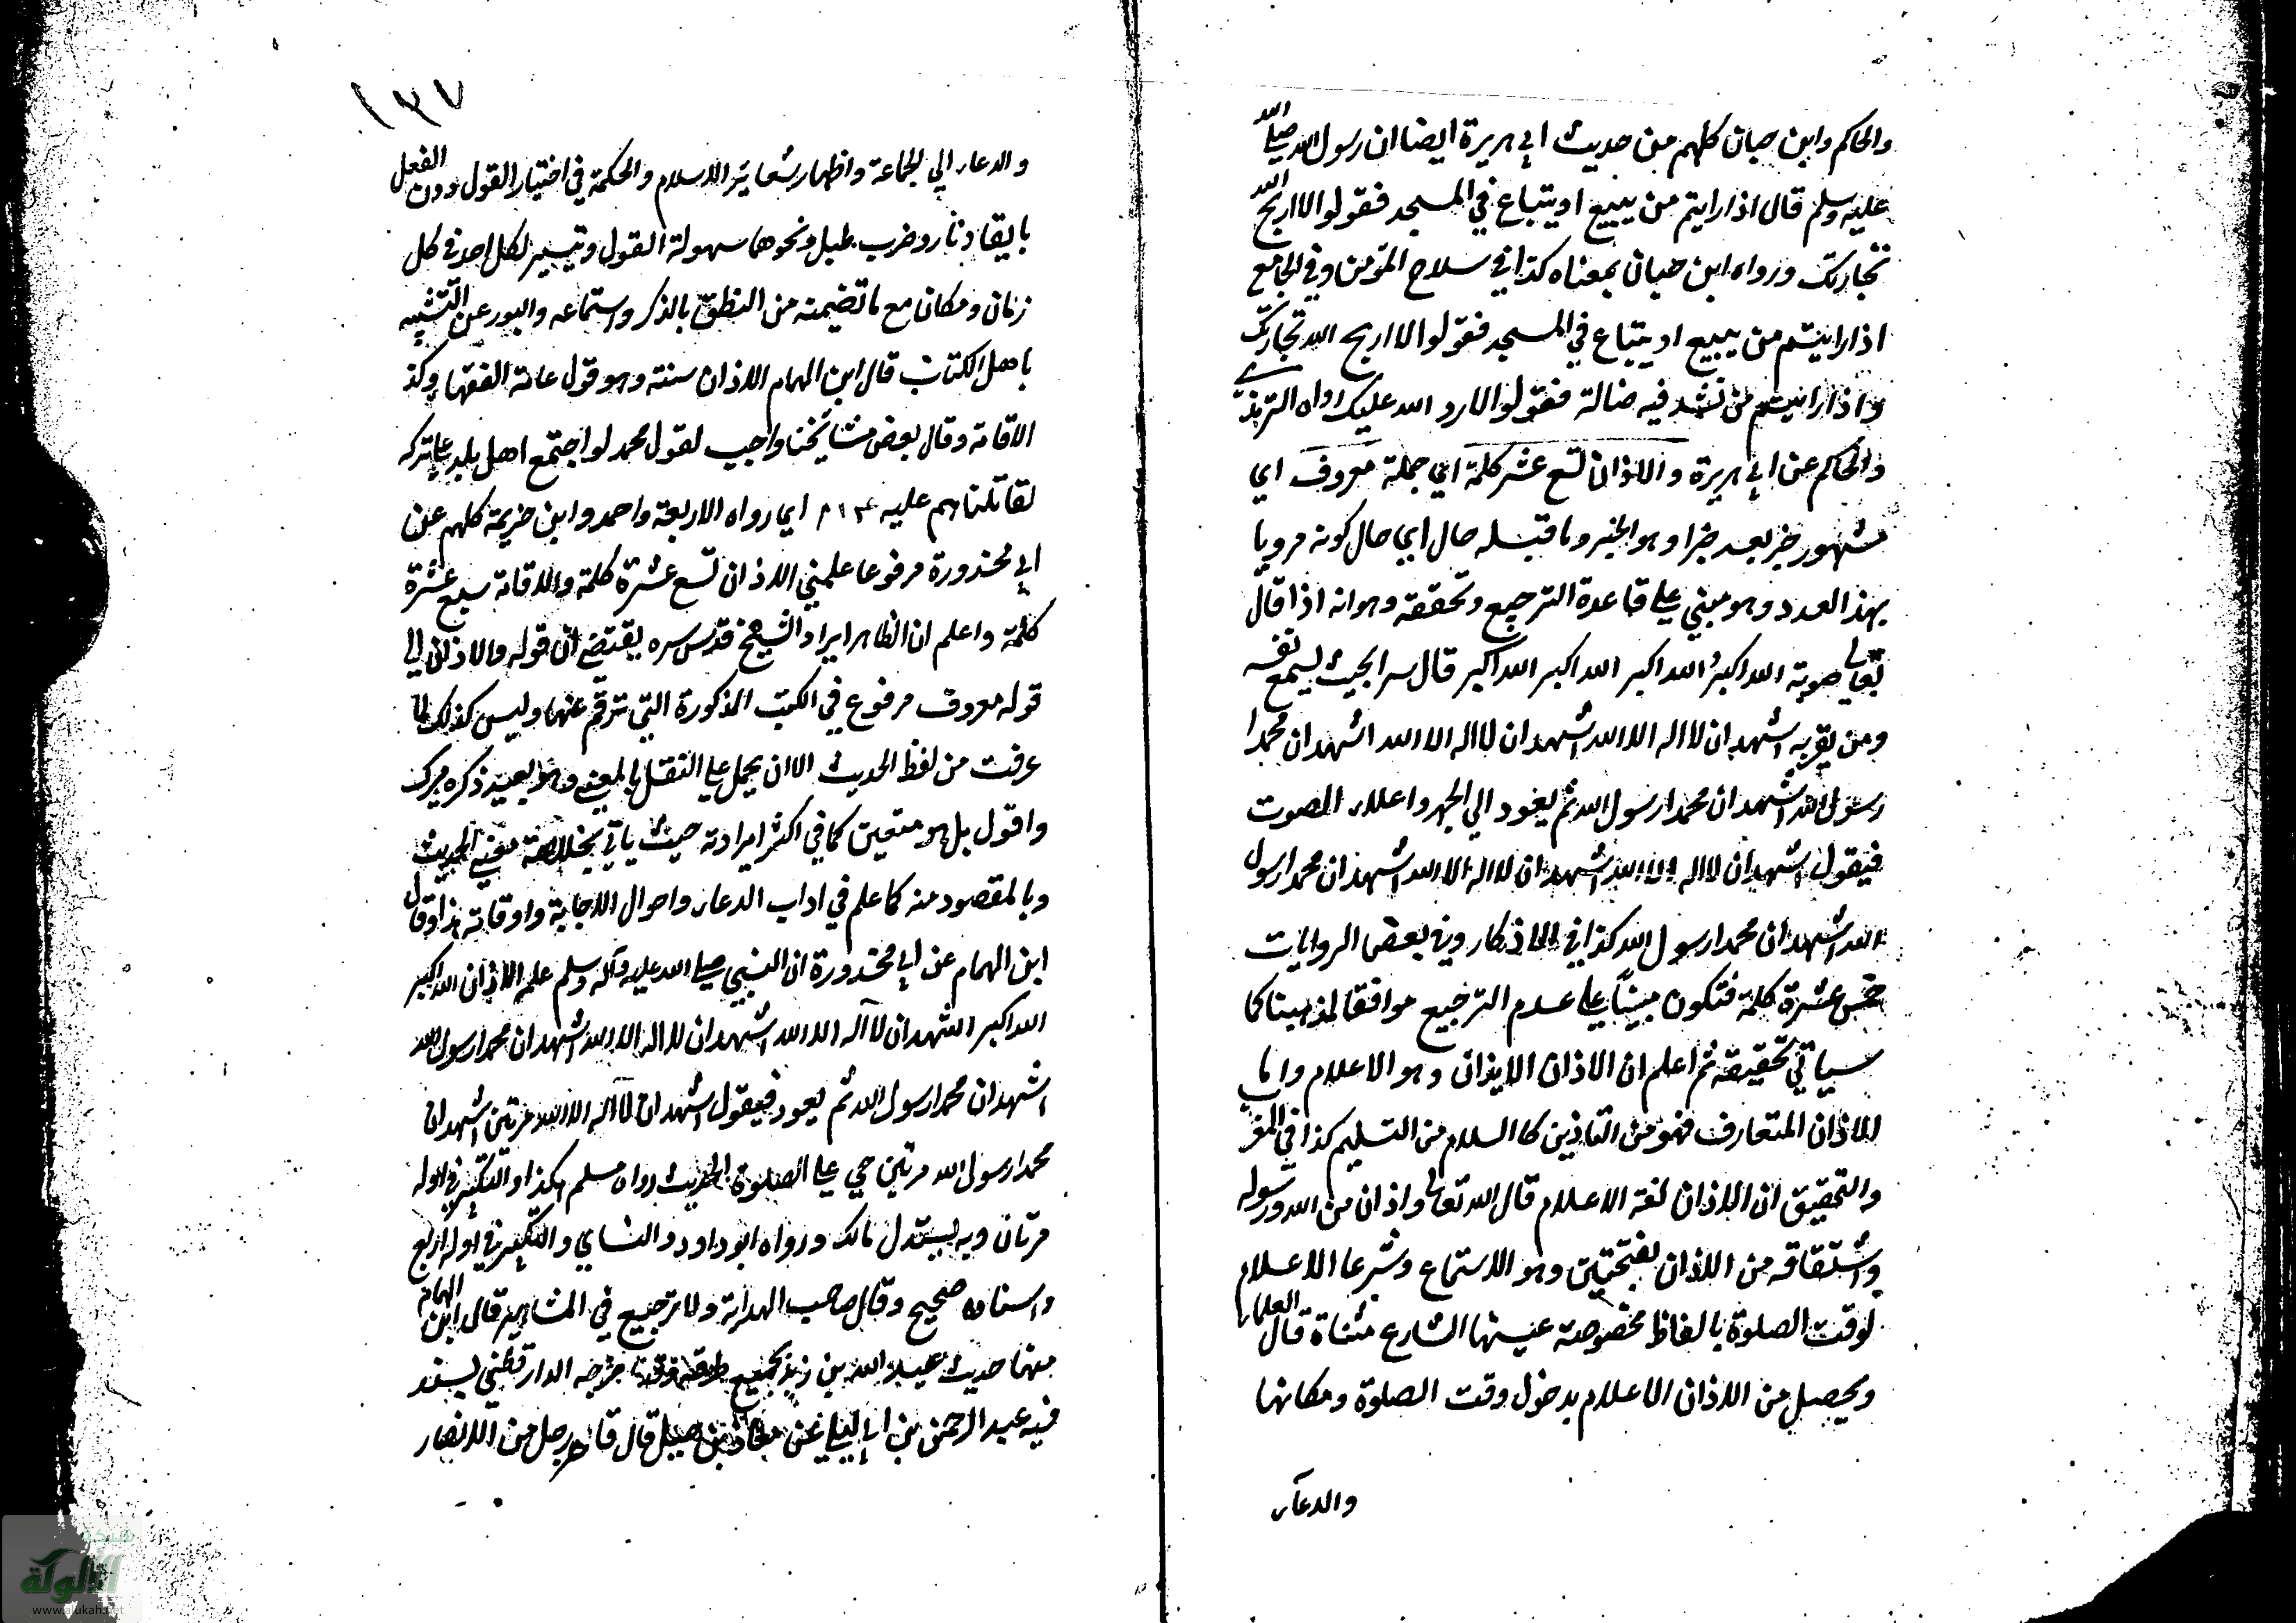 والحاكم وابن حبان كلهم من حديث ابي هريرة ايضا ان رسول الله صلي الله
عليه وسلم قال اذا رايتم من يبيع او يبتاع في المسجد فقولوا لا اربح الله
تجارتك ورواه ابن حبان بمعناه كذا في سلاح المؤمن وفي الجامع
اذا رايتم من يبيع او يبتاع في المسجد فقولوا لا اربح الله تجارتك
واذا رايتم من ينشد فيه ضالة فقولوا لا رد الله عليك رواه الترمذي
والحاكم عن ابي هريرة والاذان تسع عشر كلمة اي جملة معروف اي
مشهور خبر بعد خبر او هو الخبر وما قبله حال اي حال كونه مرويا
بهذا العدد وهو مبني علي قاعدة الترجيع وتحققه وهو انه اذا قال
بعالي صوته الله اكبر الله اكبر الله اكبر الله اكبر قال سرا بحيث يسمع نفسه
ومن يقربه اشهد ان لا اله الا الله اشهد ان لا اله الا الله اشهد ان محمدا
رسول الله اشهد ان محمدا رسول الله ثم يعود الي الجهر واعلاء الصوت
فيقول اشهد ان لا اله الا الله اشهد ان لا اله الا الله اشهد ان محمدا رسول
الله اشهد ان محمدا رسول الله كذا في الاذكار وفي بعض الروايات
خمس عشرة كلمة فتكون مبنيا علي عدم الترجيع موافقا لمذهبنا كما
سياتي تحقيقه ثم اعلم ان الاذان الايذان وهو الاعلام واما
الاذان المتعارف فهو من التاذين كالسلام من التسليم كذا في المغرب
والتحقيق ان الاذان لغة الاعلام قال الله تعالي واذان من الله ورسوله
واشتقاقه من الاذن بفتحتين وهو الاستماع وشرعا الاعلام
لوقت الصلوة بالفاظ مخصوصة عينها الشارع مثناة قال العلماء
ويحصل من الاذان الاعلام بدخول وقت الصلوة ومكانها
والدعاء
١٣٧
والدعاء الي الجماعة واظهار شعائر الاسلام والحكمة في اختيار القول دون الفعل
بايقاد نار وضرب طبل ونحوهما سهولة القول وتيسير لكل احد في كل
زمان ومكان مع ما تضيمنه من النطق بالذكر واستماعه والبور عن التشبيه
باهل الكتاب قال ابن الهمام الاذان سنة وهو قول عامة الفقها وكذا
الاقامة وقال بعض مشائخنا واجب لقول محمد لو اجتمع اهل بلد علي تركه
لقاتلناهم عليه اي رواه الاربعة واحمد وابن خزيمة كلهم عن
ابي محذورة مرفوعا علمني الاذان تسع عشرة كلمة والاقامة سبع عشرة
كلمة واعلم ان الظاهر ايراد الشيخ قدس سره يقتضي ان قوله والاذان الي
قوله معروف مرفوع في الكتب المذكورة التي ترقم عنها وليس كذلك لما
عرفت من لفظ الحديث الا ان يحمل علي النقل بالمعني وهو بعيد ذكره ميرك
واقول بل هو متعين كما في اكثر ايراداته حيث ياتي بخلاصة معني الحديث
وبالمقصود منه كما علم في اداب الدعاء واحوال الاجابة واوقاته هذا وقال
ابن الهمام عن ابي محذورة ان النبي صلي الله عليه وآله وسلم علمه الاذان الله اكبر
الله اكبر اشهد ان لا اله الا الله اشهد ان لا اله الا الله اشهد ان محمدا رسول الله
اشهد ان محمدا رسول الله ثم يعود فيقول اشهد ان لا اله الا الله مرتين اشهد ان
محمدا رسول الله مرتين حي علي الصلوة الحديث رواه مسلم هكذا والتكبير في اوله
مرتان وبه يستدل مالك ورواه ابو داود والنسائي والتكبير في اوله اربع
واسناده صحيح وقال صاحب الهداية ولا ترجيع في المشاهير قال ابن الهمام
منها حديث عبد الله بن زيد بجميع طرقه ومنها اخرجه الدارقطني بسند
فيه عبد الرحمن بن ابي ليلي عن معاذ بن جبل قال قام رجل من الانصار